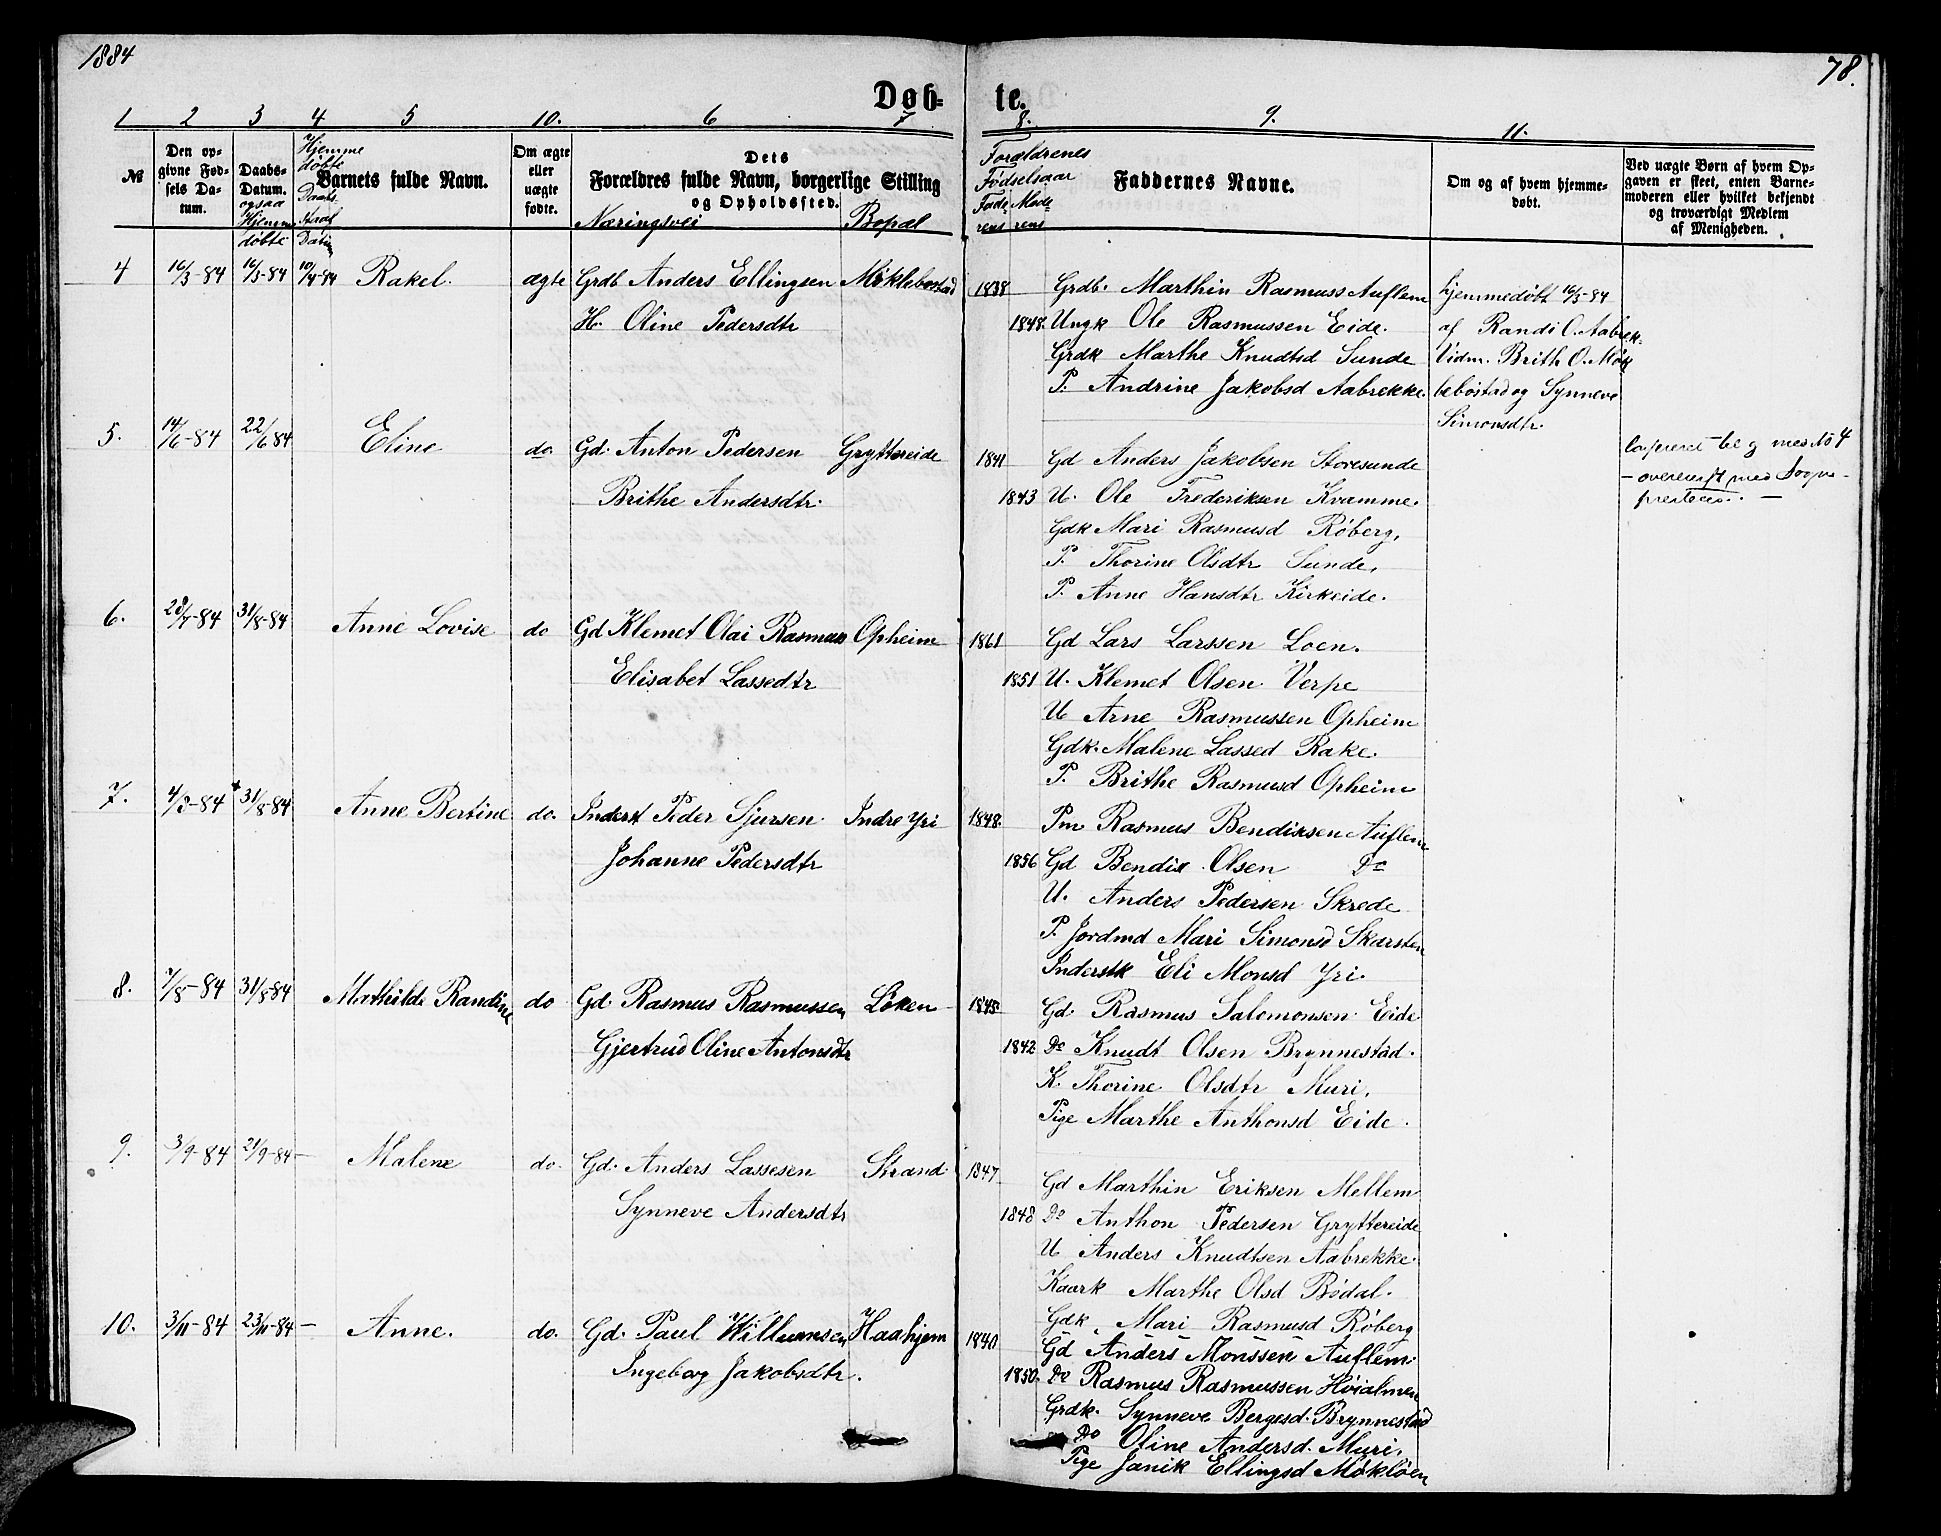 1884
78.
Døb-
te.
1 2 3 4 5 10. 6 7 8. 9. 11.
№
Den op-
givne Fød-
sels Da-
tum.
Daabs-
Datum.
ogsaa
Hjemme
døbte
Hjemme
døbte
Daabs
Datum
Barnets fulde Navn.
Om ægte
eller
uægte
fødte.
Dets
Forældres fulde Navn, borgerlige Stilling
og Opholdssted.
Næringsvei
Bopæl
Forældrenes
Fødselsaar
Fade- Mode-
rens rens
Faddernes Navne.
Om og af hvem hjemme-
døbt.
Ved uægte Børn af hvem Op-
gaven er skeet, enten Barne-
moderen eller hvilket bekjendt
og troværdigt Medlem
af Menigheden.
4 16/3-84 16/3-84 10/4-84 Rakel. ægte Grdb Anders Ellingsen Møklebøstad
H. Oline Pedersdtr
1838 Grdb. Marthin Rasmuss Auflem
1848. Ungk Ole Rasmussen Eide.
Grdk Marthe Knudtsd Sunde
P. Andrine Jakobsd Aabrekke.
hjemmedøbt 16/3-84
af Randi O. Aabrek-
Vidm. Brith O. Møk
lebøstad og Synneve
Simonsdtr.
5. 14/6-84 22/6 84 Eline do. Gd. Anton Pedersen Gryttereide
Brithe Andersdtr.
1841 Gd Anders Jakobsen Storesunde
1843 U. Ole Frederiksen Kvamme.
Gdk Mari Rasmusd Røberg,
P. Thorine Olsdtr Sunde,
P. Anne Hansdtr Kirkeide.
Confereret til og med No 4
6. 28/7-84 31/8-84 Anne Lovise do Gd Klemet Olai Rasmuss Opheim
Elisabet Lassedtr
1861 Gd Lars Larssen Loen.
1851 U. Klemet Olsen Verpe
U Arne Rasmussen Opheim
Gdk. Malene Lassed Rake.
P. Brithe Rasmusd Opheim
7. 4/8-84 31/8-84 Anne Bertine do. Inderst Peder Sjursen. Indre Yri
Johanne Pedersdtr
1848. Pm Rasmus Bendiksen Auflem
1856 Gd Bendix Olsen Do
U. Anders Pedersen Skrede
P. Jordmd Mari Simonsd Skarsten
Inderstk Eli Monsd Yri.
8. 7/8-84 31/8-84 Mathilde Randine do Gd. Rasmus Rasmussen Løken
Gjertrud Oline Antonsdtr
1845. Gd. Rasmus Salomonsen Eide
1842 Do Knudt Olsen Brynnestad.
K. Thorine Olsdtr Muri,
Pige Marthe Anthonsd Eide.
9. 3/9-84 21/9-84- Malene do. Gd. Anders Lassesen Strand
Synneve Andersdtr
1847 Gd Marthin Eriksen Mellem
1848 Do Anthon Pedersen Gryttereide
U Anders Knudtsen Aabrekke.
Kaark Marthe Olsd Bødal.
Gdk. Mari Rasmusd Røberg
10. 3/11-84 23/11-84- Anne. do. Gd. Paul Willumsen Haahjem
Ingeborg Jakobsdtr.
1840 Gd Anders Monssen Auflem.
1850. Do Rasmus Rasmussen Høialmen
Grdk. Synneve Bergesd. Brynnestad
Do Oline Andersd. Muri,
Pige Janik Ellingsd Møkløen